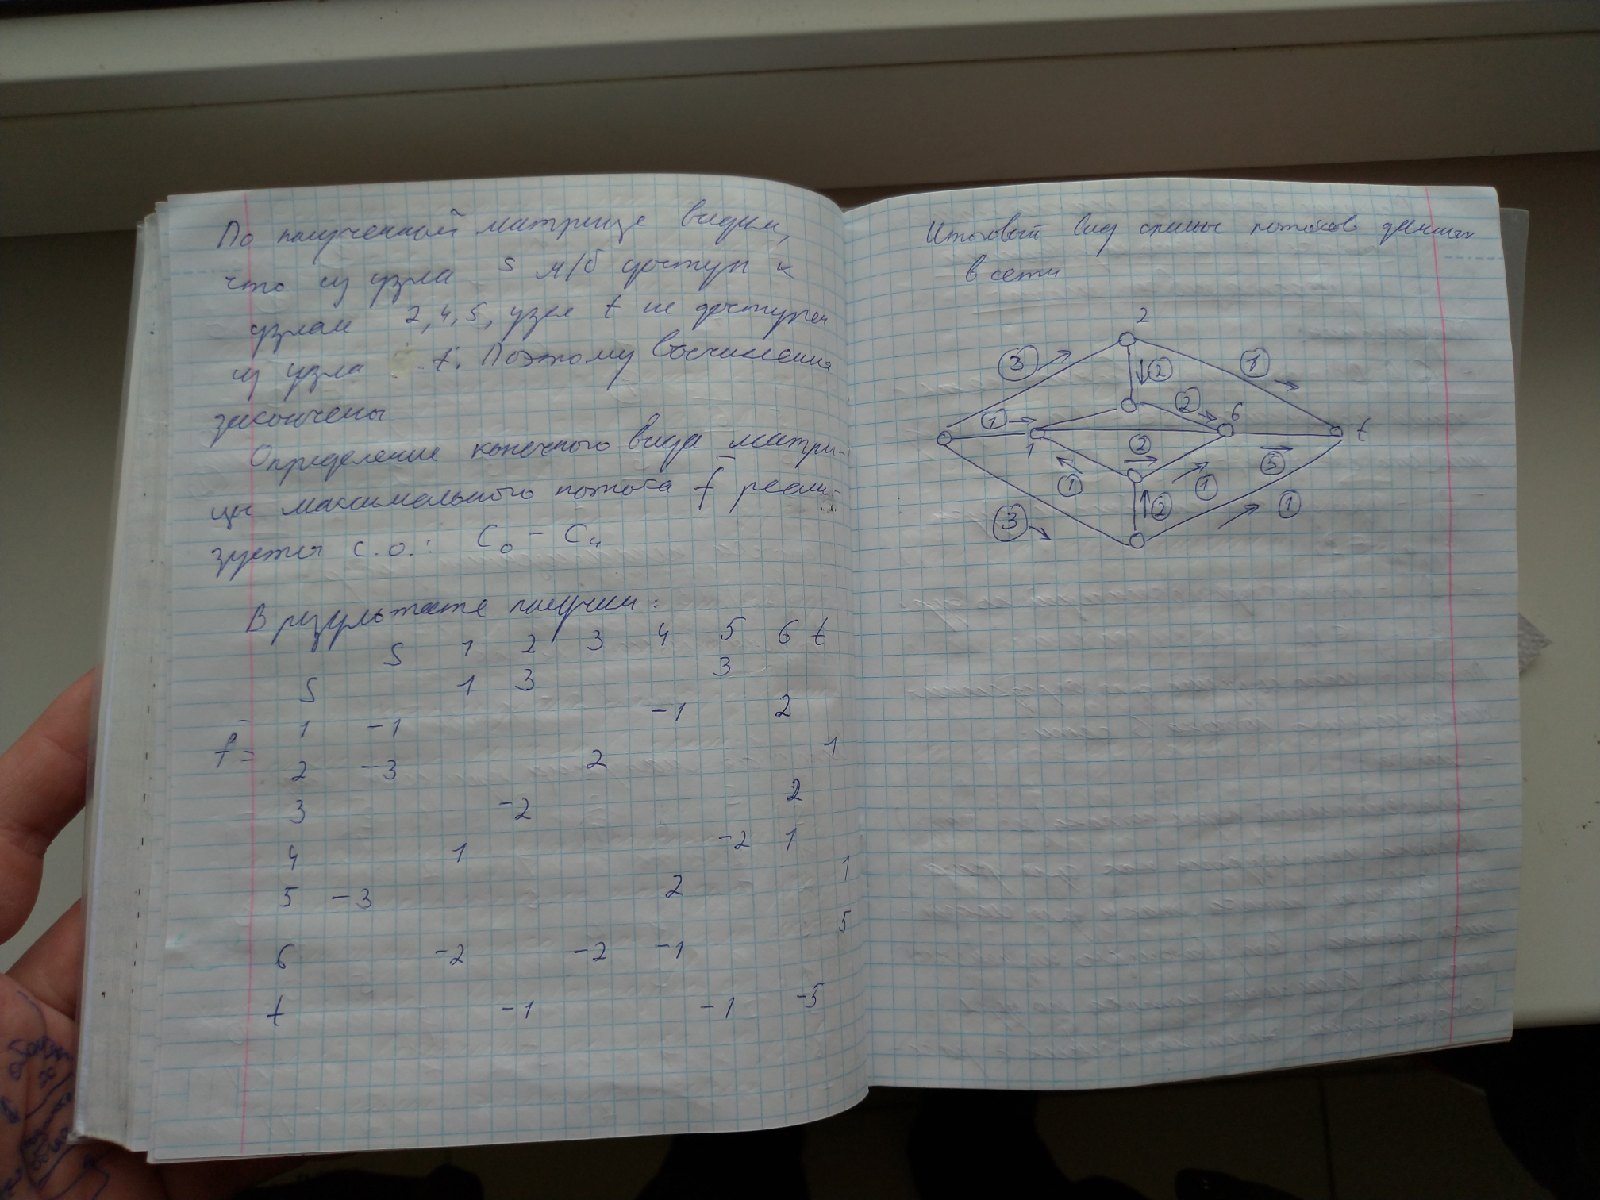 По полученной матрице видим,
что из узла s м/б доступ к
узлам 2,4,5, узел t не доступен
из узла t. Поэтому вычисления
закончены
Определение конечного вида матри-
цы максимального потока f реали-
зуется с.о.: C₀ - C₄
В результате получим:
S 1 2 3 4 5 6 t
S 1 3 3
1 -1 -1 2
f=
2 -3 2 1
3 -2 2
4 1 -2 1
5 -3 2 1
6 -2 -2 -1 5
t -1 -1 -5
Итоговый вид потоков данных
в сети
2
3
2
1
1
2
6
t
1
2
5
1
1
2
3
1